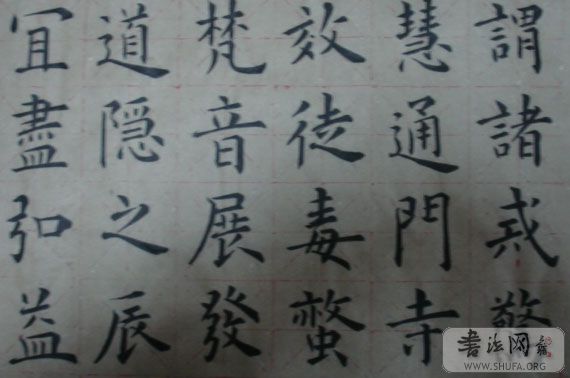 謂諸戒警
慧通門寺
效徒毒螫
梵音展發
道隐之辰
冝盡弘益
書法网
WWW.SHUFA.ORG